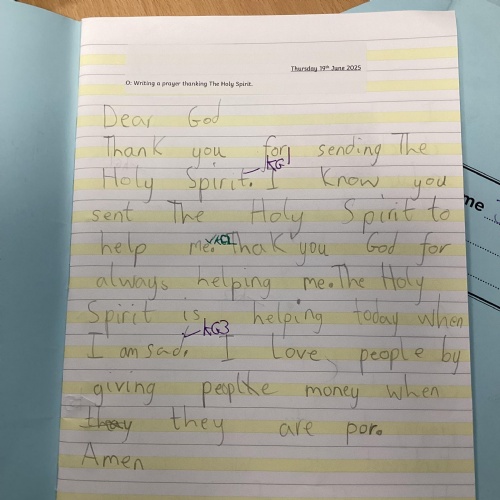 Thursday 19th June 2025
O: Writing a prayer thanking The Holy Spirit.
Dear God
Thank you for sending The
KG1
Holy Spirit. I know you
sent The Holy Spirit to
help me. Thak you God for
always helping me. The Holy
Spirit is helping today when
KG3
I am sad. I Love people by
giving peplke money when
they they are por.
Amen
me